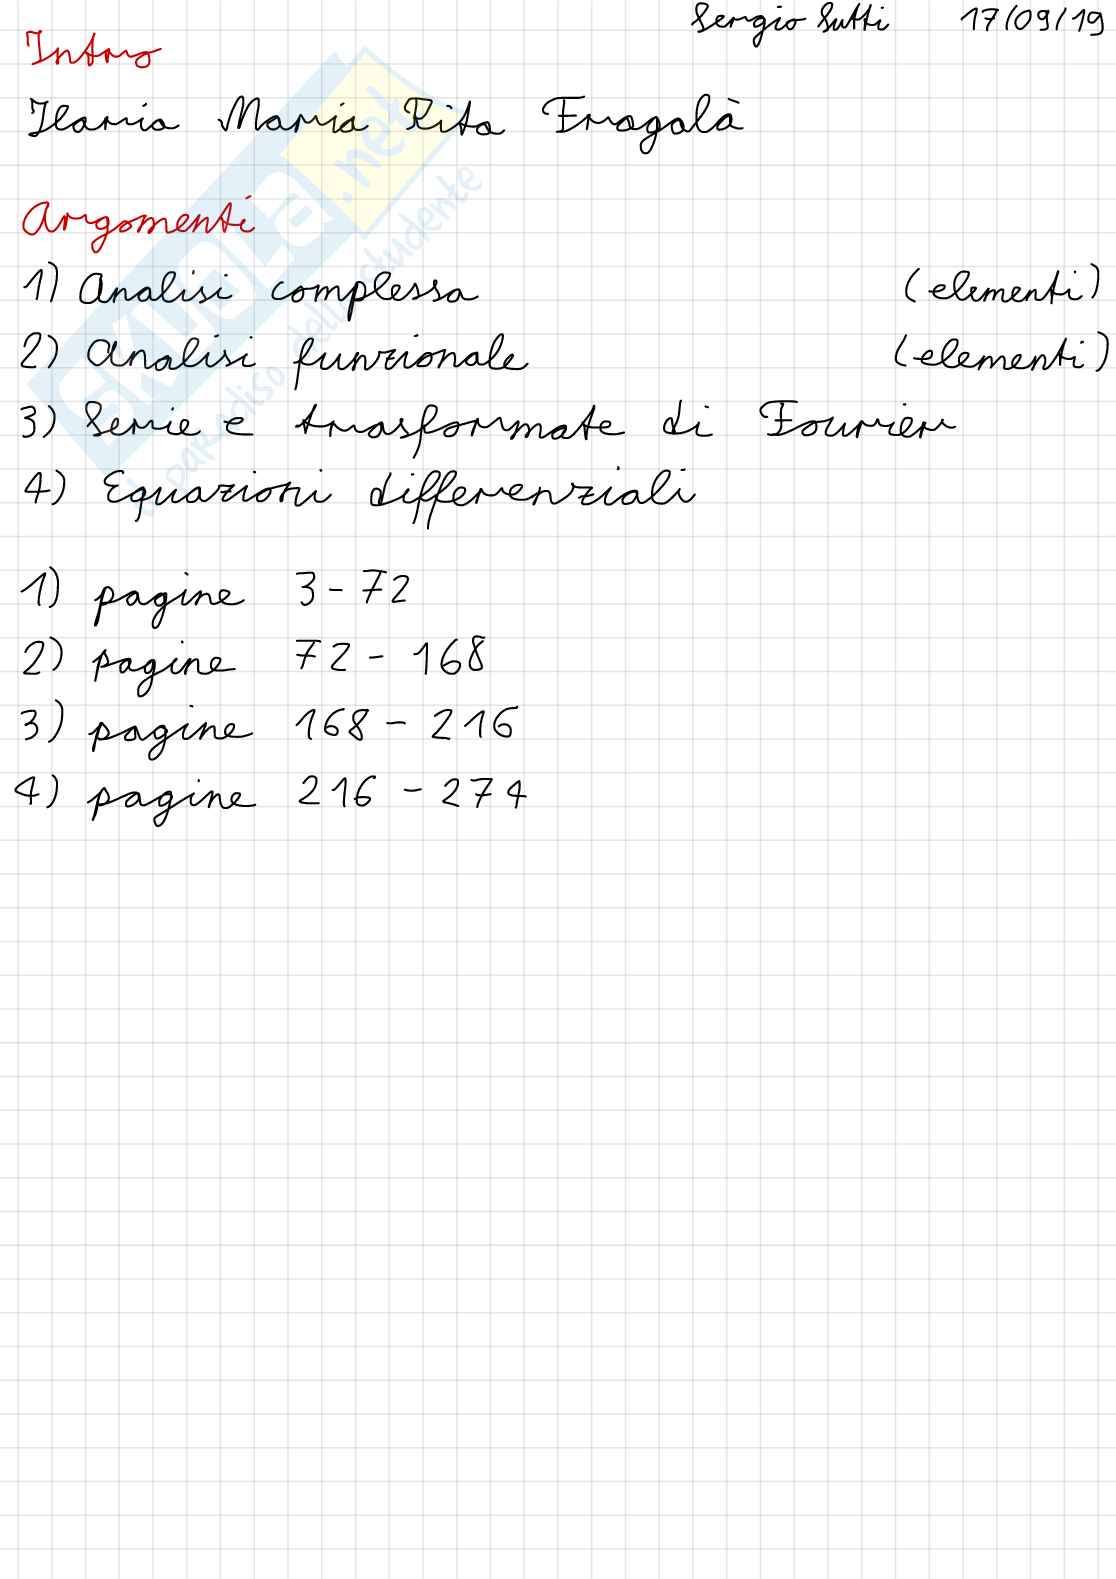 Sergio Sutti 17/09/19
Intro
Ilaria Maria Rita Fragalà
Argomenti
1) Analisi complessa (elementi)
2) Analisi funzionale (elementi)
3) Serie e trasformate di Fourier
4) Equazioni differenziali
1) pagine 3-72
2) pagine 72-168
3) pagine 168-216
4) pagine 216-274
skuola.net
il paradiso dello studente